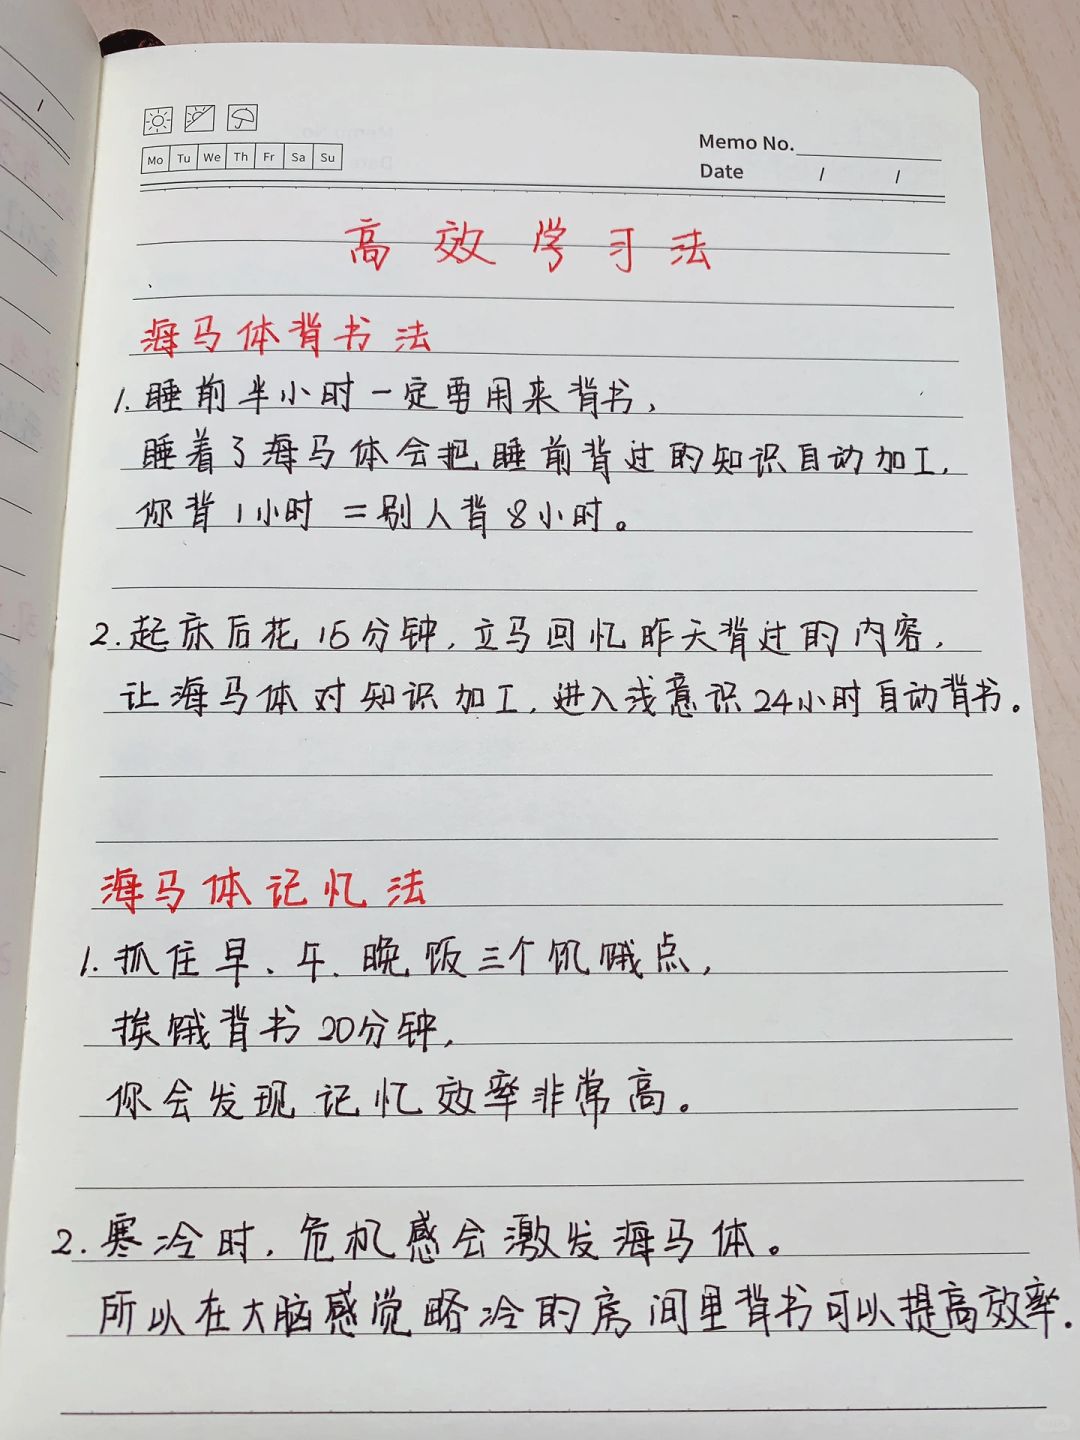 Mo Tu We Th Fr Sa Su
Memo No.
Date / /
高效学习法
海马体背书法
1.睡前半小时一定要用来背书,
睡着了海马体会把睡前背过的知识自动加工,
你背1小时=别人背8小时。
2.起床后花15分钟,立马回忆昨天背过的内容,
让海马体对知识加工,进入浅意识24小时自动背书。
海马体记忆法
1.抓住早、午、晚饭三个饥饿点,
挨饿背书20分钟,
你会发现记忆效率非常高。
2.寒冷时,危机感会激发海马体。
所以在大脑感觉略冷的房间里背书可以提高效率.